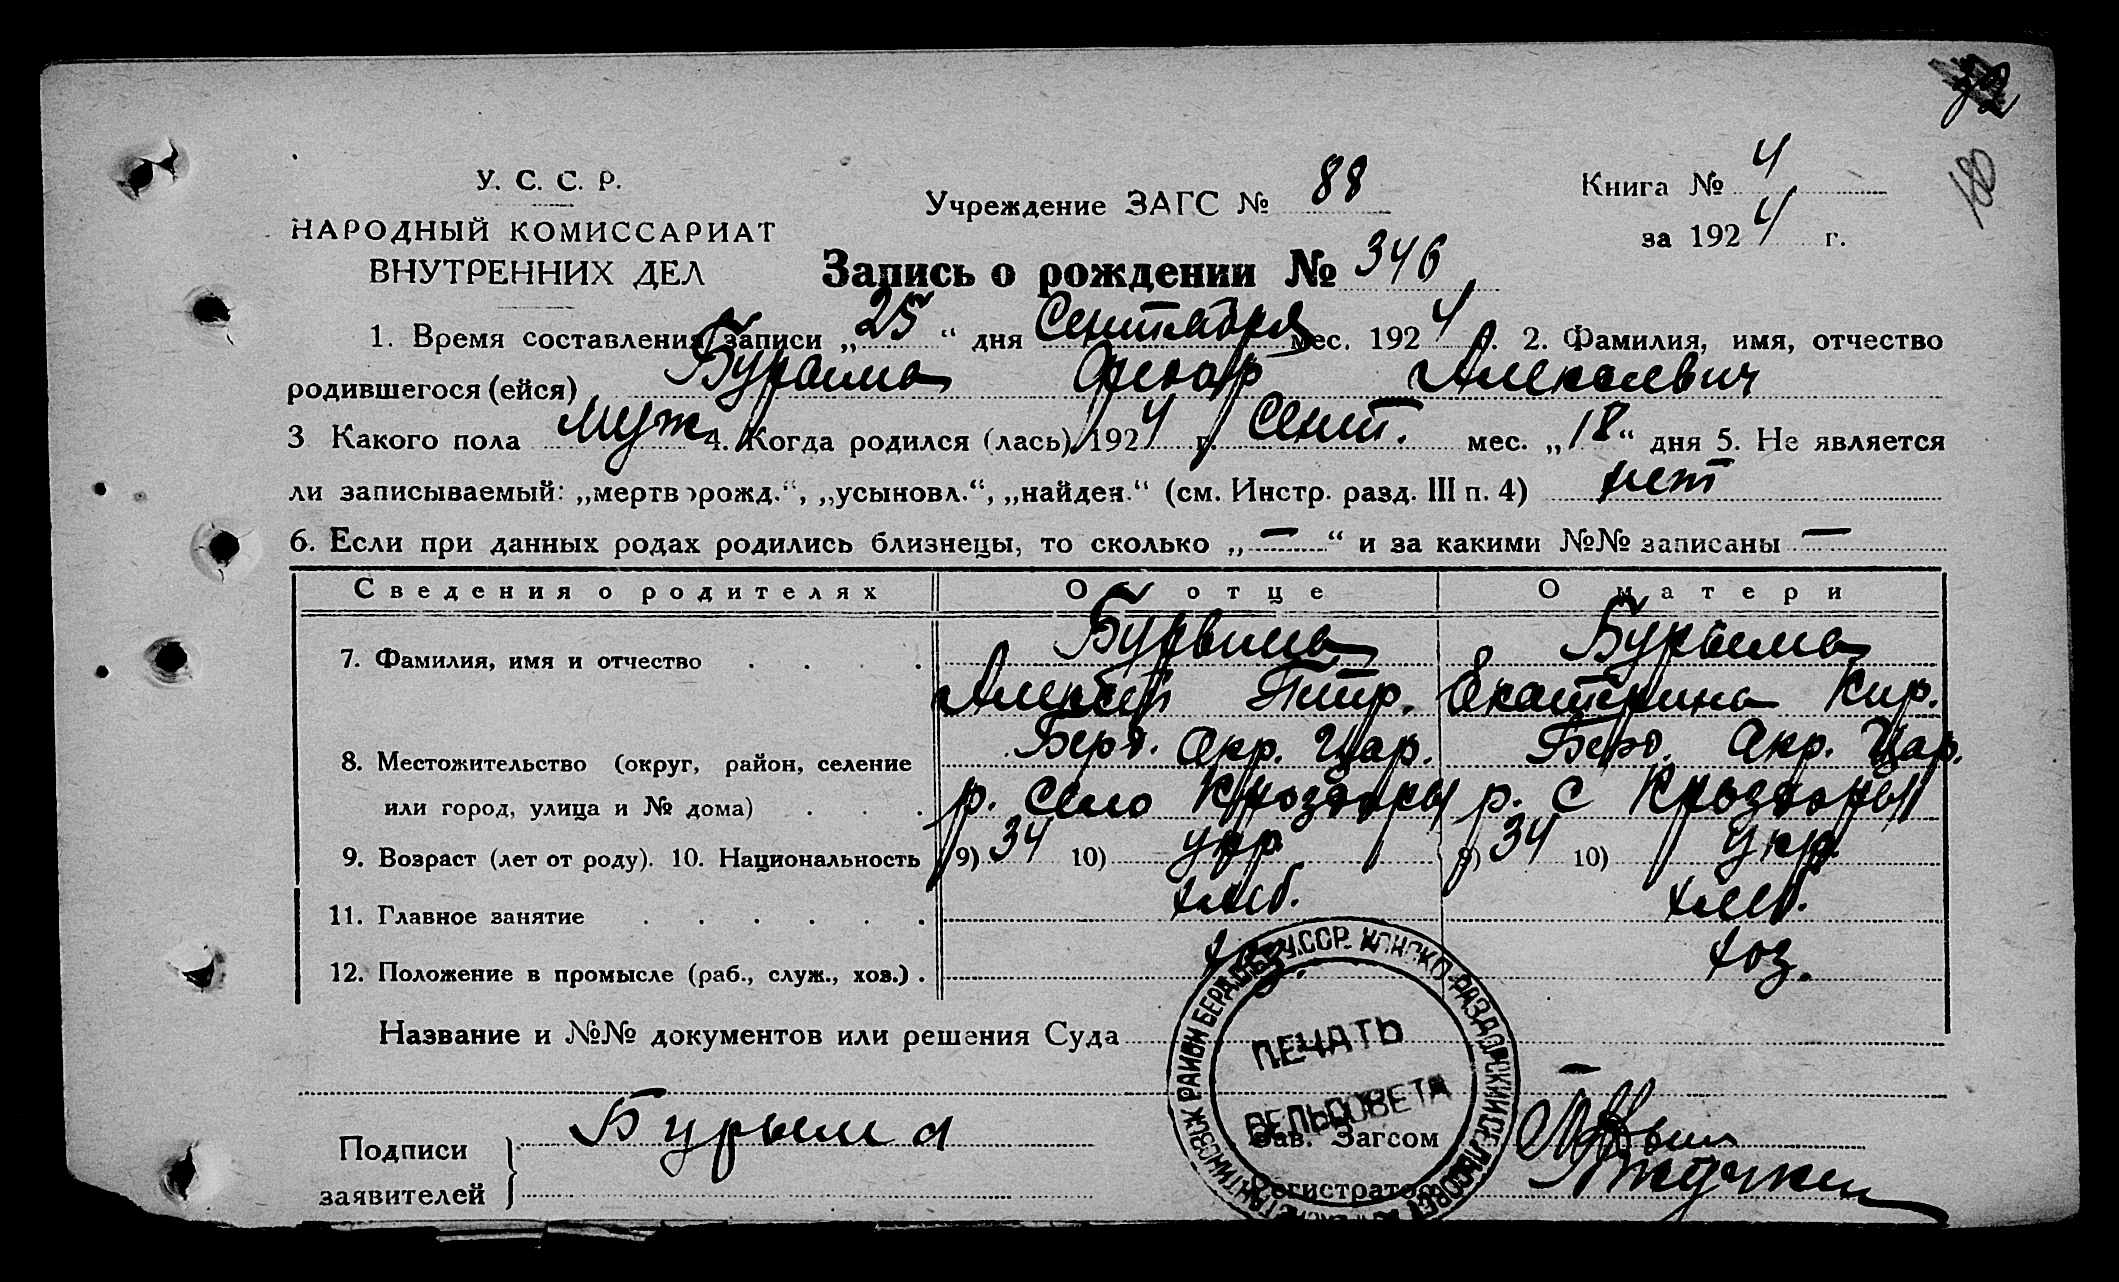 180
У. С. С. Р.
НАРОДНЫЙ КОМИССАРИАТ
ВНУТРЕННИХ ДЕЛ
Учреждение ЗАГС № 88
Книга № 4
за 1924 г.
Запись о рождении № 346
1. Время составления записи „25“ дня Сентября мес. 1924 г. 2. Фамилия, имя, отчество
родившегося (ейся) Бурыма Федор Алексеевич
3 Какого пола муж 4. Когда родился (лась) 1924 г. Сент. мес. „18“ дня 5. Не является
ли записываемый: „мертворожд.“, „усыновл.“, „найден.“ (см. Инстр. разд. III п. 4) нет
6. Если при данных родах родились близнецы, то сколько „—“ и за какими №№ записаны —
Сведения о родителях О отце О матери
7. Фамилия, имя и отчество Бурыма Бурыма
Алексей Петр. Екатерина Кир.
8. Местожительство (округ, район, селение Берд. Окр. Цар. Берд. Окр. Цар.
или город, улица и № дома) р. село р. с
9. Возраст (лет от роду). 10. Национальность 9) 34 10) укр. 9) 34 10) укр.
11. Главное занятие хлеб. хлеб.
12. Положение в промысле (раб., служ., хоз.) . хоз. хоз.
Название и №№ документов или решения Суда —
У.ССР. КОНСКО-РАЗДОРСКИЙ СЕЛЬСОВЕТ РАЙОН БЕРДЯ
ПЕЧАТЬ
СЕЛЬСОВЕТА
Подписи
заявителей } Бурыма
Зав. Загсом
Регистратор